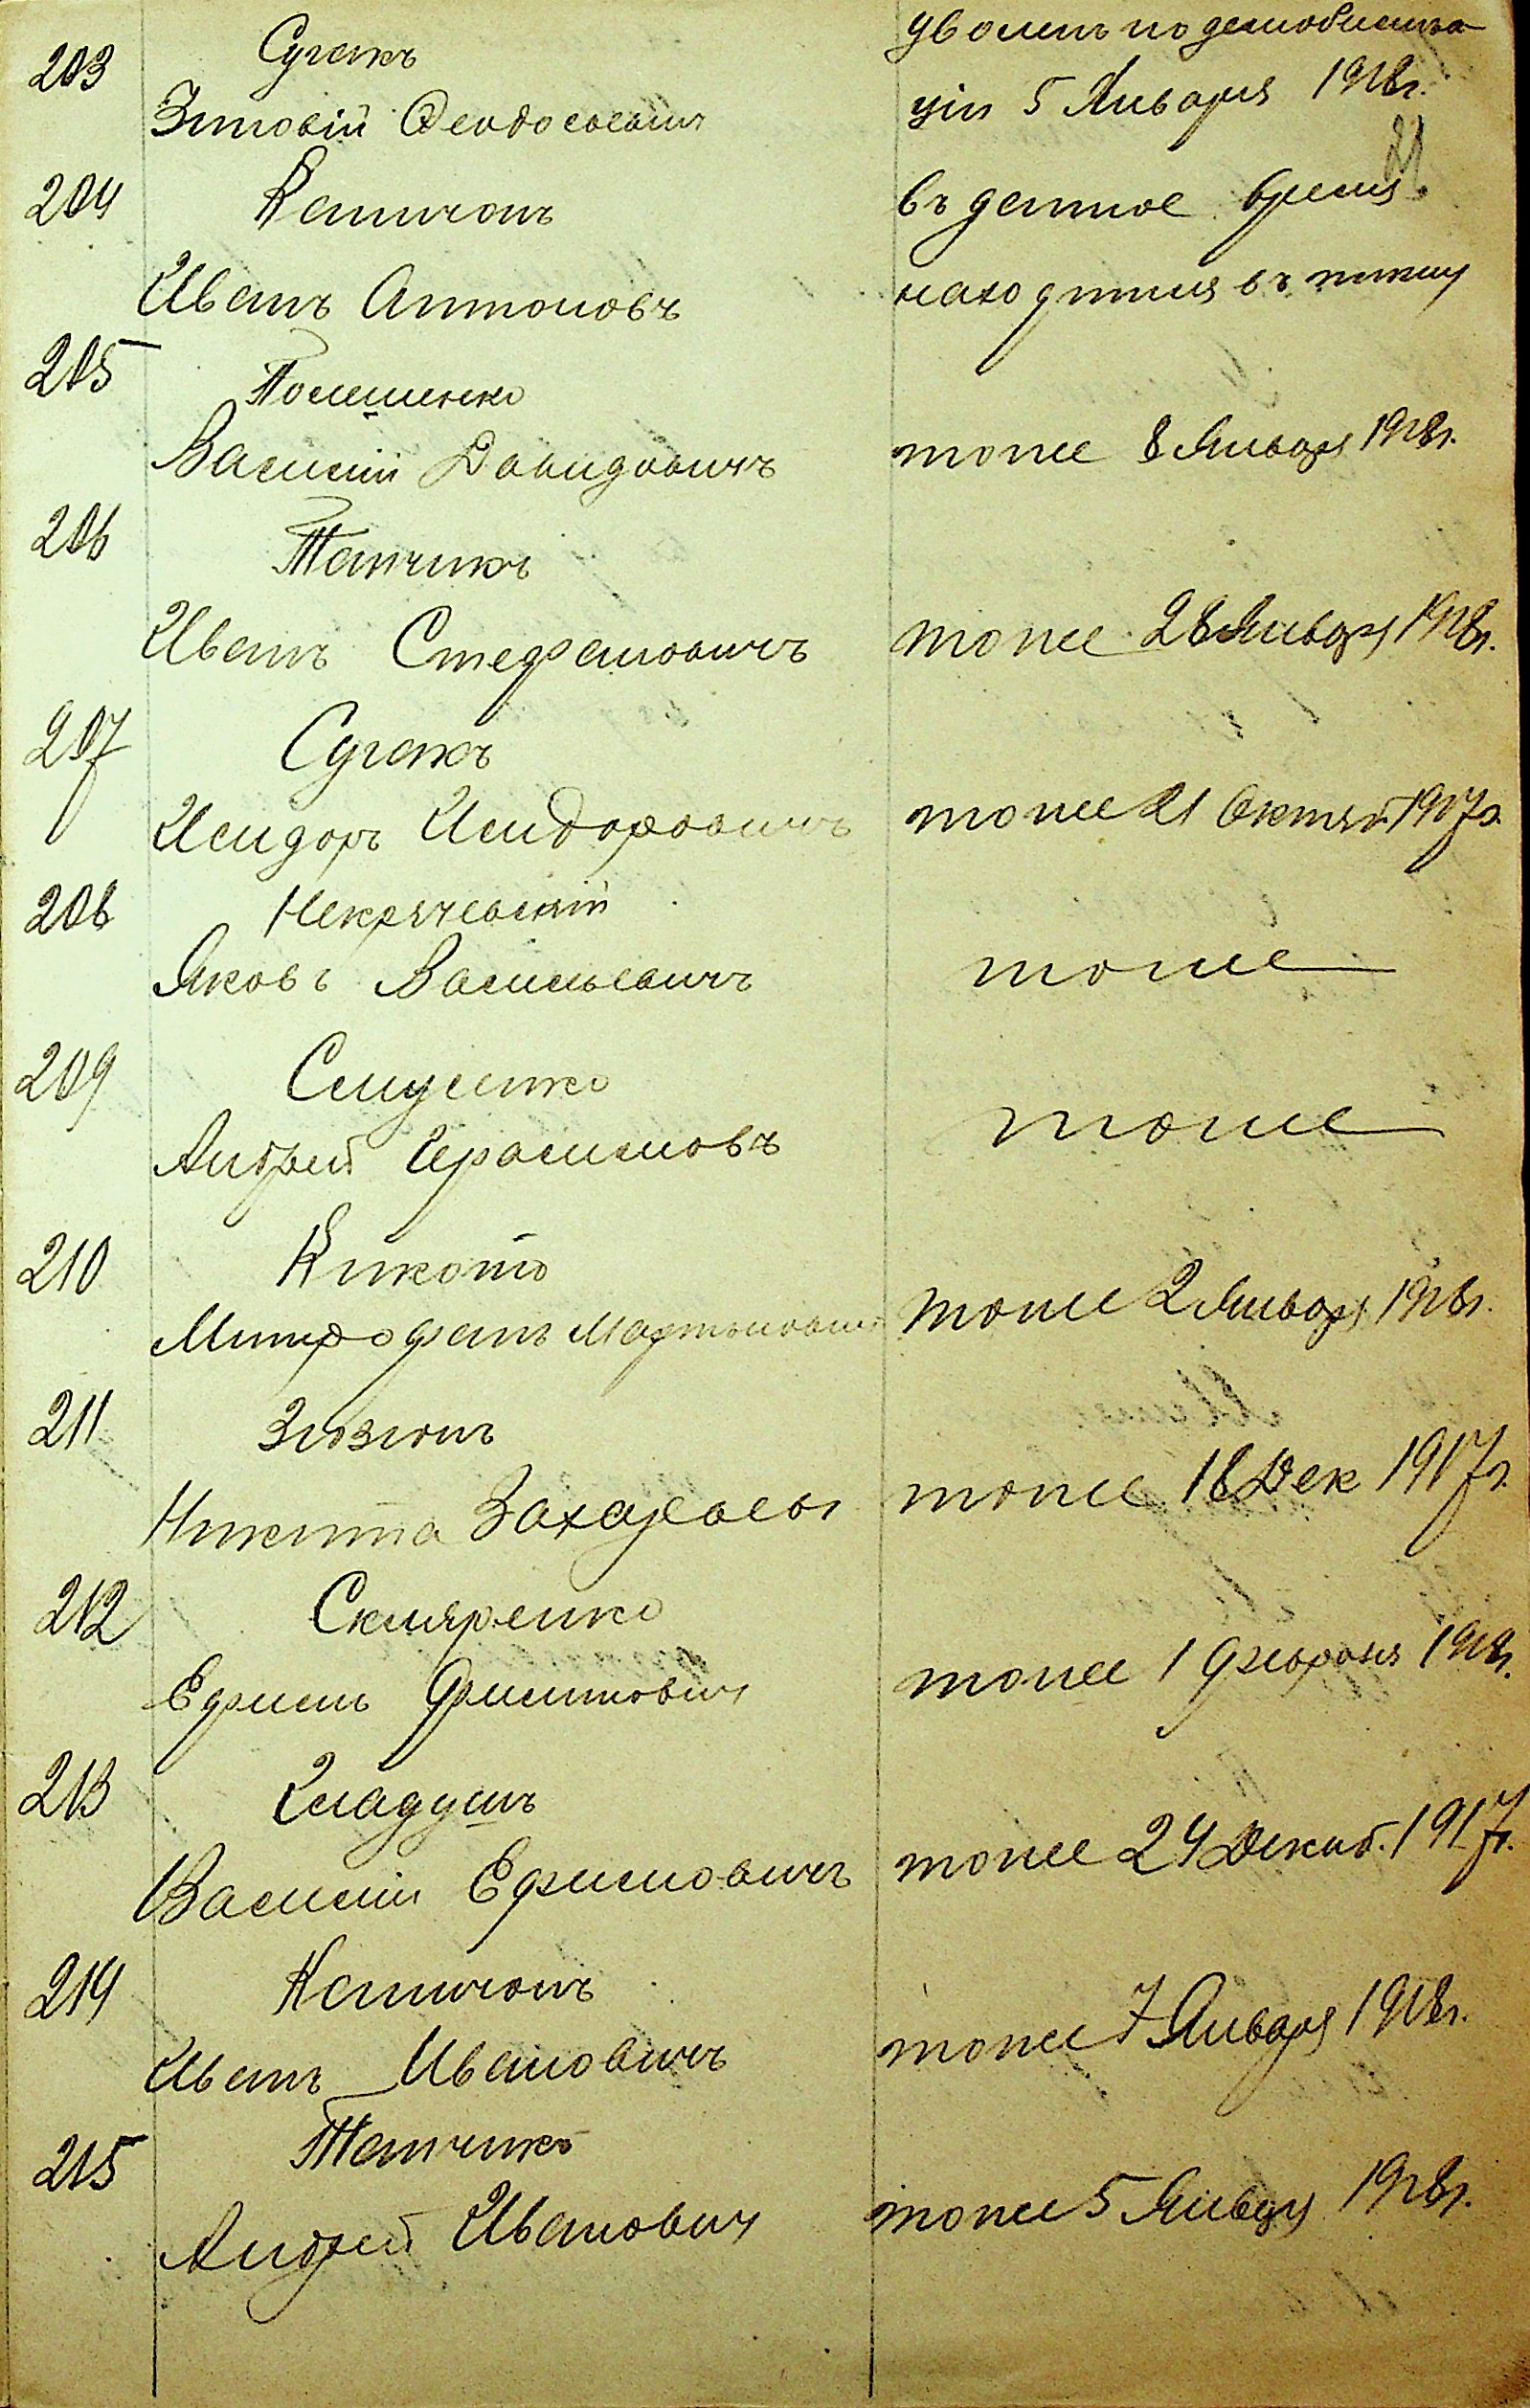 203 Сугакъ уволенъ по демобилиза
Зиновій Феодосьевич ціи 5 Января 1918г.
21
204 Капшонъ въ данное время
Иванъ Антоновъ находится въ плену
205 Полешенко
Василій Давидовичъ тоже 8 Января 1918г.
206 Танчикъ
Иванъ Стефановичъ тоже 28 Января 1918г.
207 Сугакъ
Исидоръ Исидоровичъ тоже 21 Октяб. 1917г.
208 Некрячевскій
Яковъ Васильевичъ тоже
209 Слусенко
Андрей Герасимовъ тоже
210 Кикотю
Митрофанъ Мартыновичъ тоже 2 Января 1918г.
211 Зюзюнъ
Никита Захарьевъ тоже 18 Дек 1917г.
212 Скляренко
Ефимъ Филиповичъ тоже 1 февраля 1918г.
213 Гладушъ
Василій Ефимовичъ тоже 24 Декаб. 1917г.
214 Капшонъ
Иванъ Ивановичъ тоже 7 Января 1918г.
215 Танчикъ
Андрей Иванович тоже 5 Января 1918г.